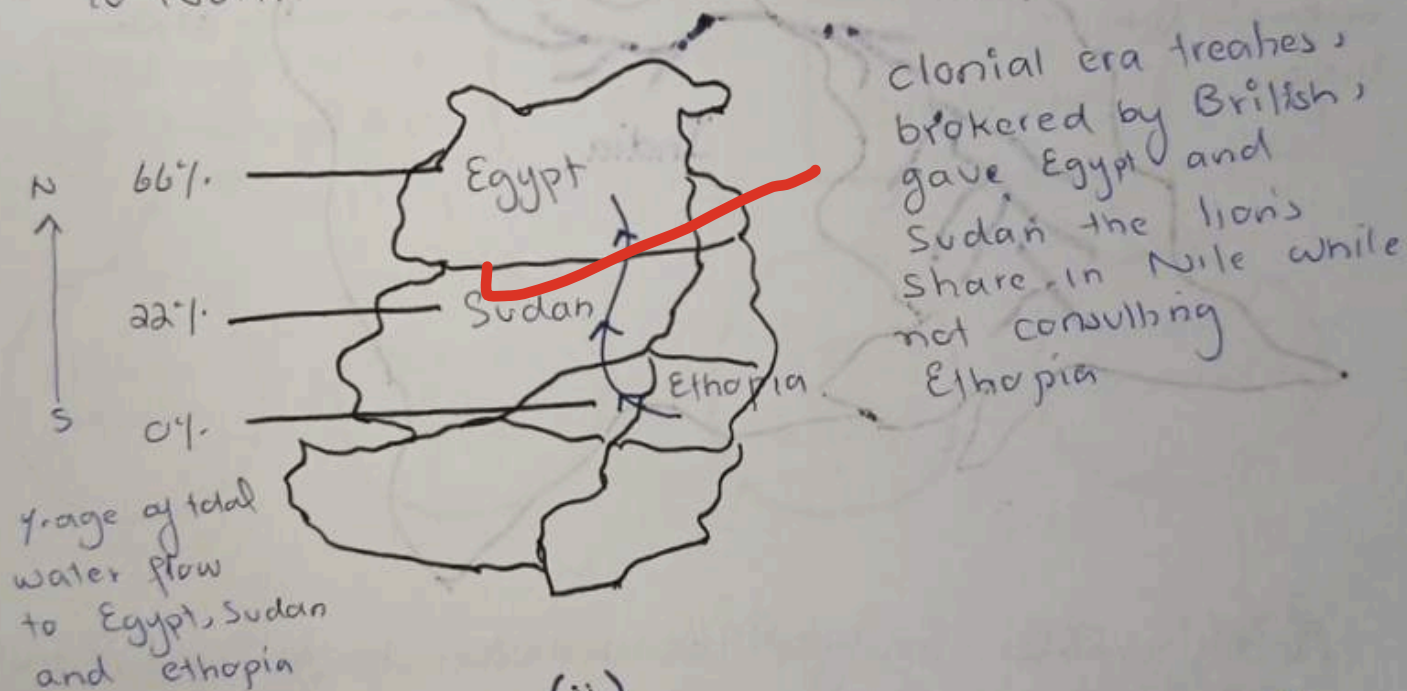 N
66%.
Egypt
22%.
Sudan
S
0%.
Ethopia
%age of total
water flow
to Egypt, Sudan
and ethopia
clonial era treaties,
brokered by British,
gave Egypt and
Sudan the lion's
share in Nile while
not consulting
Ethopia
(ii)